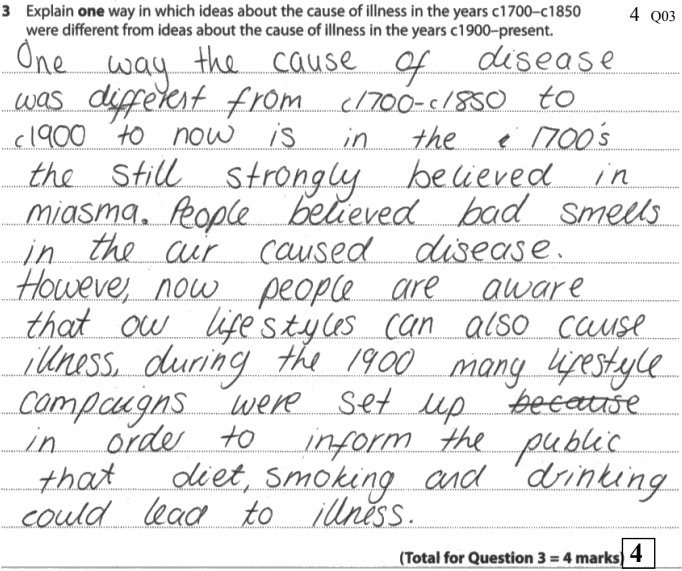 3 Explain one way in which ideas about the cause of illness in the years c1700–c1850 4 Q03
were different from ideas about the cause of illness in the years c1900–present.
One way the cause of disease
was different from c1700-c1850 to
c1900 to now is in the 1700's
the still strongly believed in
miasma. People believed bad smells
in the air caused disease.
However, now people are aware
that our lifestyles can also cause
illness, during the 1900 many lifestyle
campaigns were set up because
in order to inform the public
that diet, smoking and drinking
could lead to illness.
(Total for Question 3 = 4 marks) 4